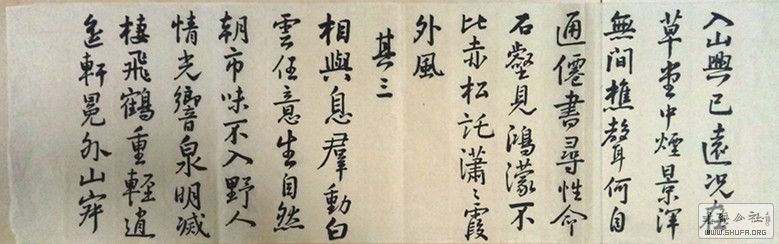 入山興已遠況在
草堂中煙景渾
無間樵聲何自
通僊書尋性命
石壑見鴻濛不
比赤松託瀟〻霞
外風
其三
相與息羣動白
雲任意生自然
朝市味不入野人
情光響泉明滅
棲飛鶴重輕逍
遙軒冕外山
WWW.SHUFA.ORG